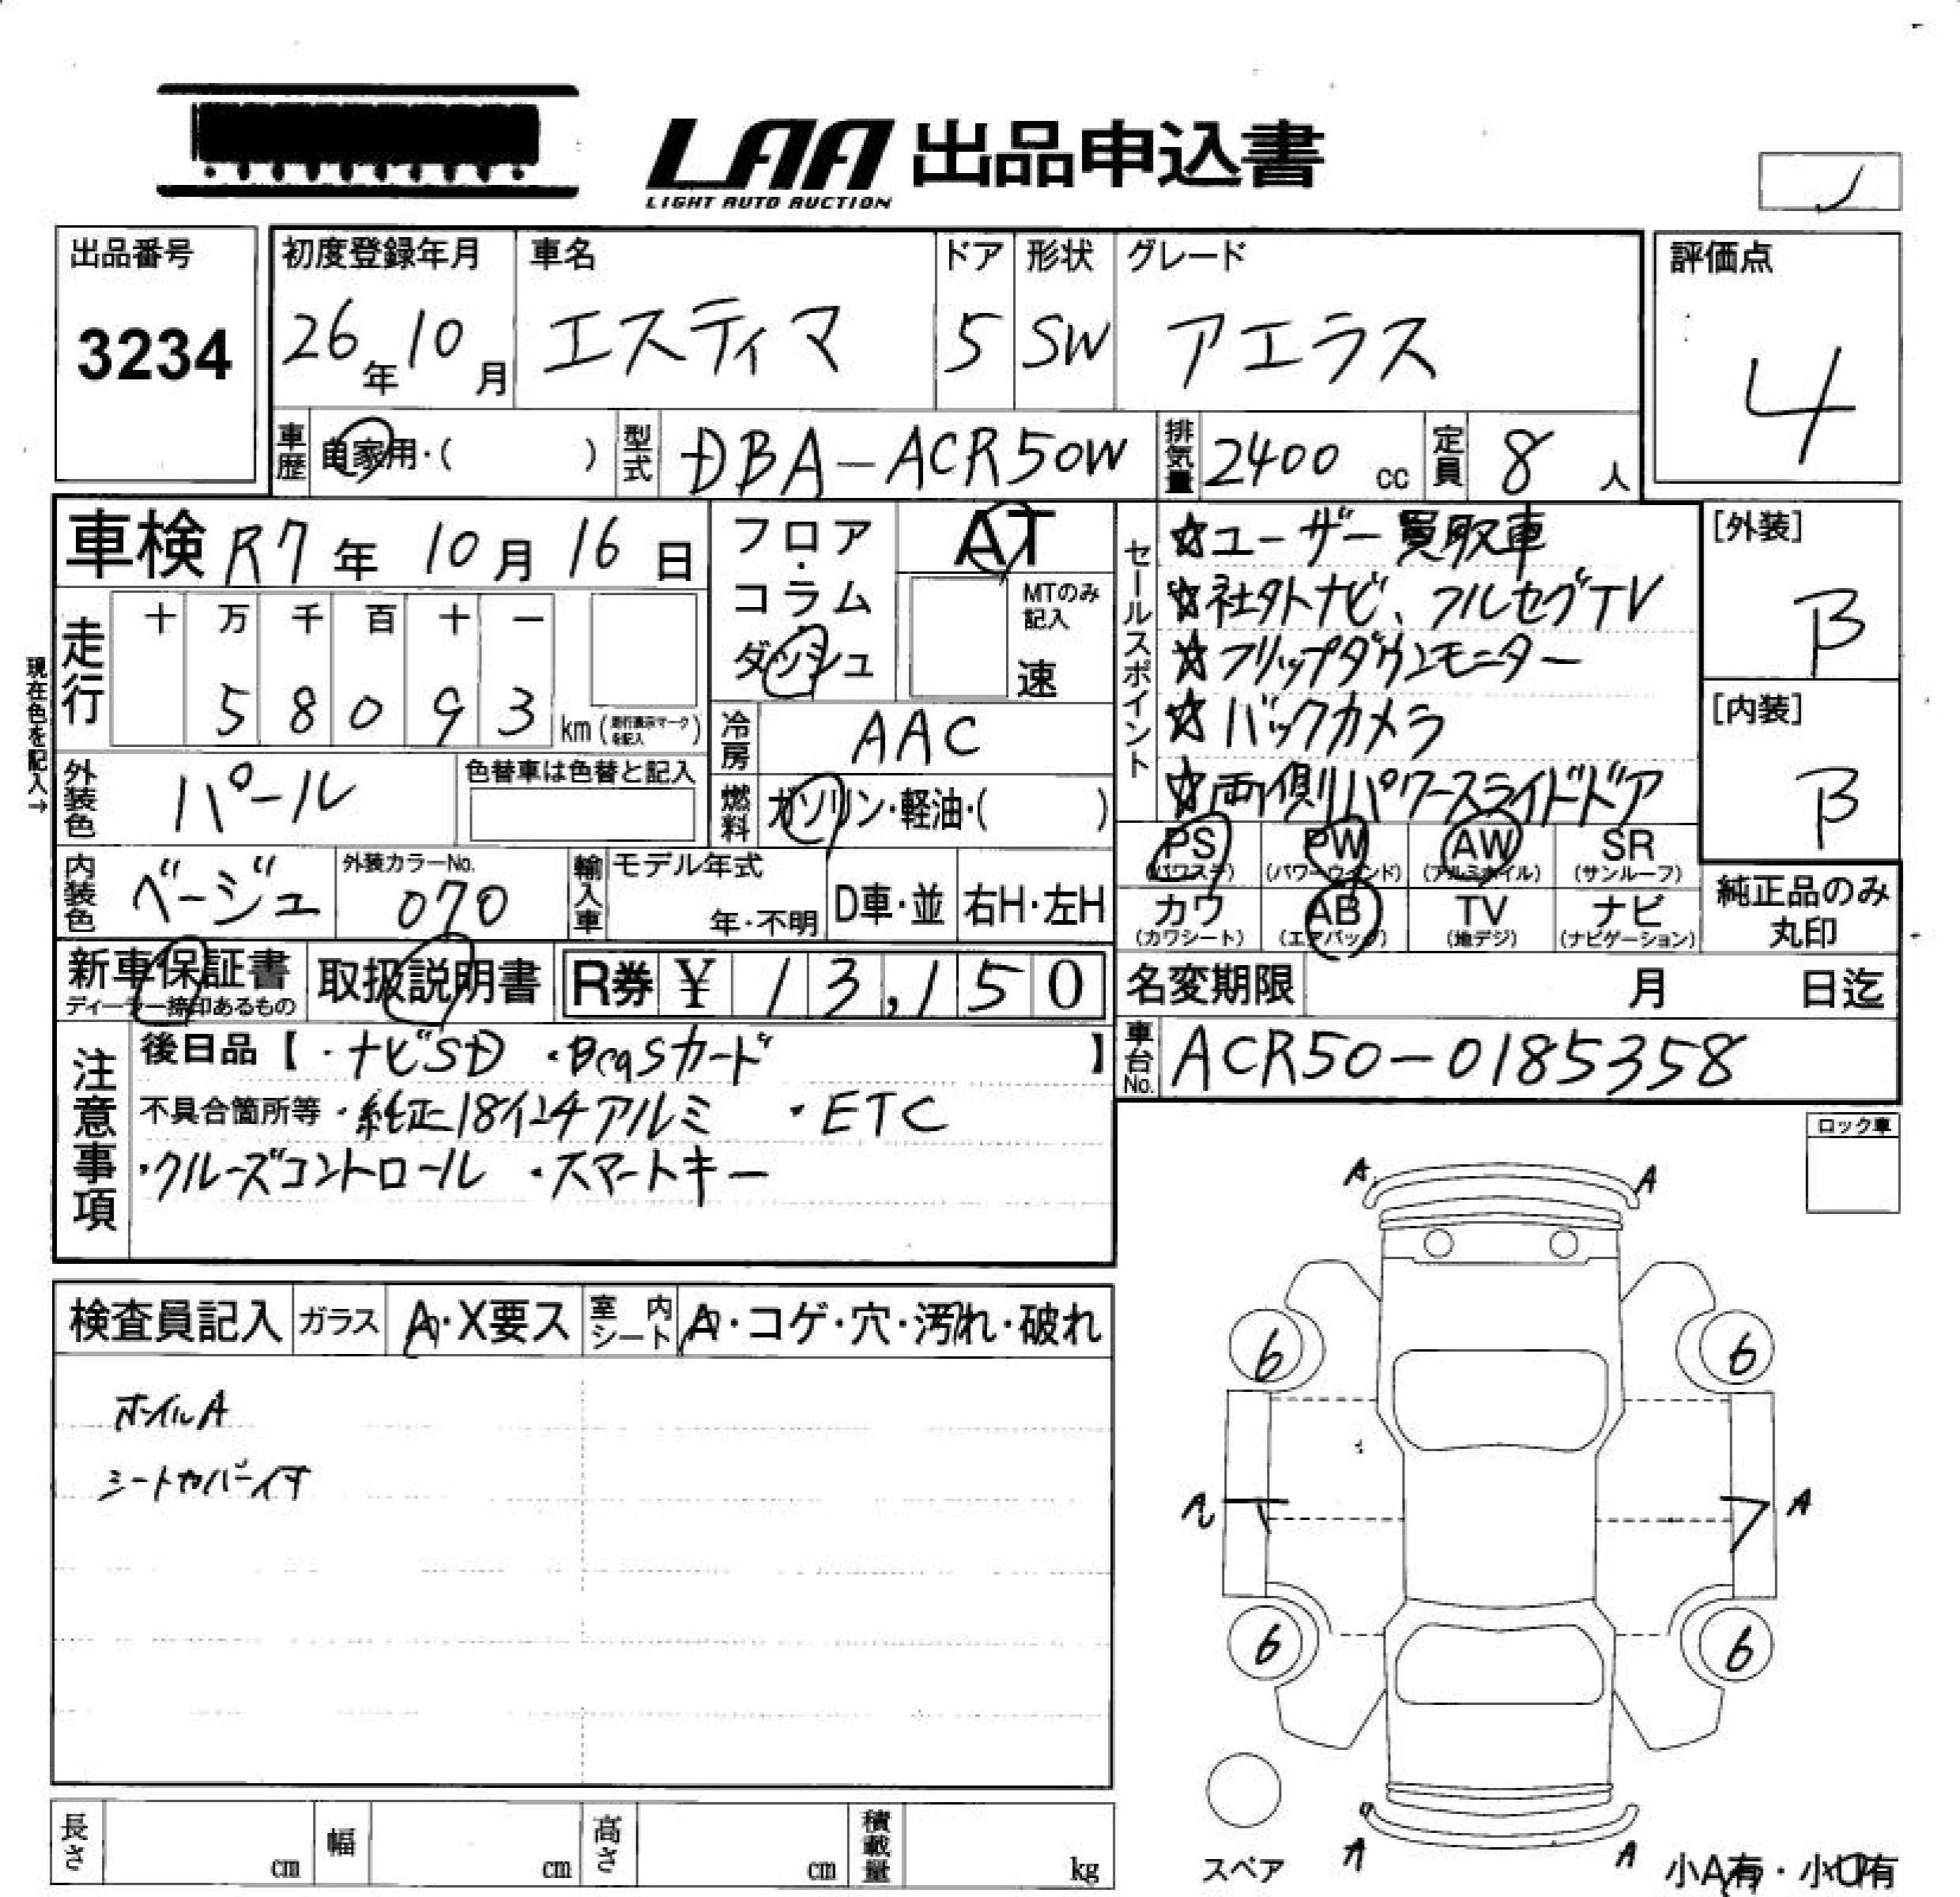 LAA 出品申込書
LIGHT AUTO AUCTION
出品番号
3234
初度登録年月 車名 ドア 形状 グレード
26年10月 エスティマ 5 SW アエラス
評価点
4
車歴 自家用・( ) 型式 DBA-ACR50W 排気量 2400 cc 定員 8 人
車検 R7年 10月 16日
フロア・コラム・ダッシュ
AT
MTのみ記入
速
現在色を記入→
走行 十 万 千 百 十 一
5 8 0 9 3 km (走行表示マークを記入)
冷房 AAC
外装色 パール 色替車は色替と記入
燃料 ガソリン・軽油・( )
内装色 ベージュ 外装カラーNo. 070
輸入車 モデル年式 年・不明 D車・並 右H・左H
セールスポイント
☆ユーザー買取車
☆社外ナビ、フルセグTV
☆フリップダウンモニター
☆バックカメラ
☆両側パワースライドドア
[外装]
B
[内装]
B
PS (パワステ) PW (パワーウインド) AW (アルミホイル) SR (サンルーフ)
カワ (カワシート) AB (エアバッグ) TV (地デジ) ナビ (ナビゲーション)
純正品のみ丸印
新車保証書 ディーラー捺印あるもの 取扱説明書 R券 ¥ 13,150
名変期限 月 日迄
車台No. ACR50-0185358
注意事項
後日品【・ナビSD ・BcasカードI】
不具合箇所等・純正18インチアルミ ・ETC
・クルーズコントロール ・スマートキー
ロック車
検査員記入 ガラス A・X要ス 室内シート A・コゲ・穴・汚れ・破れ
ホイルA
シートカバー付
A A
6 6
A
6 6
スペア
A A
小A有・小U有
長さ cm 幅 cm 高さ cm 積載量 kg